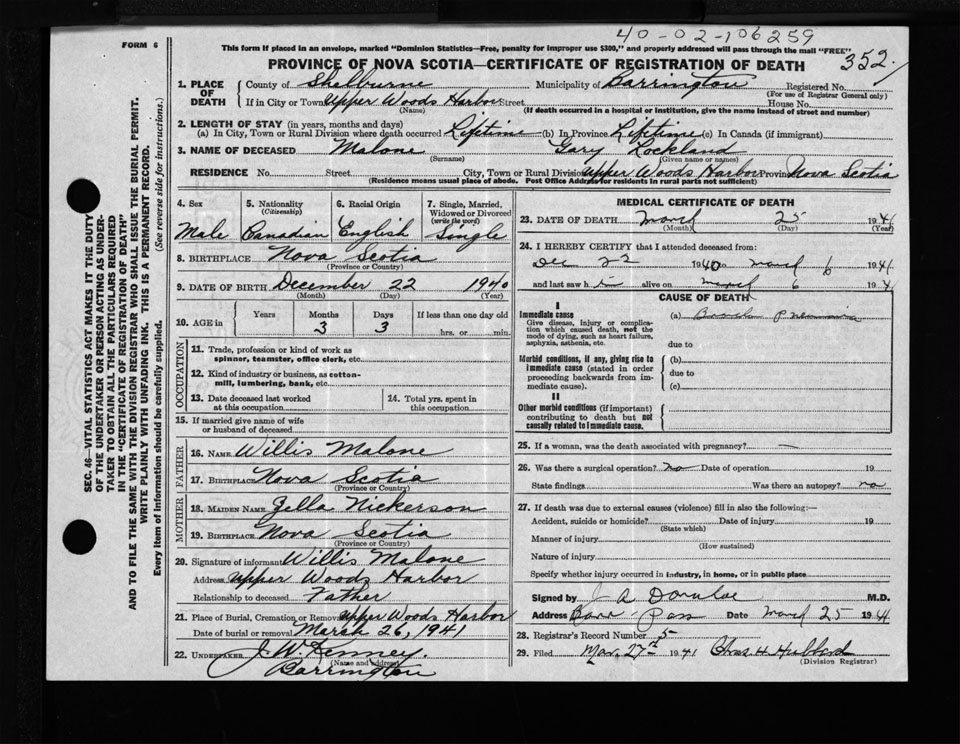 40-02-106259
FORM 6
This form if placed in an envelope, marked "Dominion Statistics—Free, penalty for improper use $300," and properly addressed will pass through the mail "FREE"
PROVINCE OF NOVA SCOTIA—CERTIFICATE OF REGISTRATION OF DEATH
352
1. PLACE OF DEATH County of Shelburne Municipality of Barrington Registered No.
(For use of Registrar General only)
If in City or Town Upper Woods Harbor Street House No.
(Name) (If death occurred in a hospital or institution, give the name instead of street and number)
2. LENGTH OF STAY (in years, months and days)
(a) In City, Town or Rural Division where death occurred Lifetime (b) In Province Lifetime (c) In Canada (if immigrant)
3. NAME OF DECEASED Malone Gary Lockland
(Surname) (Given name or names)
RESIDENCE No. Street City, Town or Rural Division Upper Woods Harbor Province Nova Scotia
(Residence means usual place of abode. Post Office Address for residents in rural parts not sufficient)
4. Sex 5. Nationality (Citizenship) 6. Racial Origin 7. Single, Married, Widowed or Divorced (write the word)
Male Canadian English Single
8. BIRTHPLACE Nova Scotia
(Province or Country)
9. DATE OF BIRTH December 22 1940
(Month) (Day) (Year)
10. AGE in Years Months Days If less than one day old
3 3 hrs. or min.
OCCUPATION
11. Trade, profession or kind of work as spinner, teamster, office clerk, etc.
12. Kind of industry or business, as cotton-mill, lumbering, bank, etc.
13. Date deceased last worked at this occupation
14. Total yrs. spent in this occupation
15. If married give name of wife or husband of deceased
FATHER
16. NAME Willis Malone
17. BIRTHPLACE Nova Scotia
(Province or Country)
MOTHER
18. MAIDEN NAME Zella Nickerson
19. BIRTHPLACE Nova Scotia
(Province or Country)
20. Signature of informant Willis Malone
Address Upper Woods Harbor
Relationship to deceased Father
21. Place of Burial, Cremation or Removal Upper Woods Harbor
Date of burial or removal March 26, 1941
22. UNDERTAKER J. W. Kenney.
(Name and address)
Barrington
MEDICAL CERTIFICATE OF DEATH
23. DATE OF DEATH March 25 1941
(Month) (Day) (Year)
24. I HEREBY CERTIFY that I attended deceased from:
Dec 22 1940 to March 6 1941
and last saw h im alive on March 6 1941
CAUSE OF DEATH
I
Immediate cause (a) Broncho Pneumonia
Give disease, injury or complication which caused death, not the mode of dying, such as heart failure, asphyxia, asthenia, etc.
due to
Morbid conditions, if any, giving rise to immediate cause (stated in order proceeding backwards from immediate cause).
(b)
due to
(c)
II
Other morbid conditions (if important) contributing to death but not causally related to immediate cause.
25. If a woman, was the death associated with pregnancy? —
26. Was there a surgical operation? no Date of operation 19
State findings Was there an autopsy? no
27. If death was due to external causes (violence) fill in also the following:—
Accident, suicide or homicide? Date of injury 19
(State which)
Manner of injury
(How sustained)
Nature of injury
Specify whether injury occurred in industry, in home, or in public place
Signed by M.D.
Address Barr Pass Date March 25 1941
28. Registrar's Record Number 5
29. Filed Mar. 27th 1941 Chas. H. Hubbard
(Division Registrar)
SEC. 46—VITAL STATISTICS ACT MAKES IT THE DUTY
OF THE UNDERTAKER OR PERSON ACTING AS UNDER-
TAKER TO OBTAIN ALL THE PARTICULARS REQUIRED
IN THE "CERTIFICATE OF REGISTRATION OF DEATH"
AND TO FILE THE SAME WITH THE DIVISION REGISTRAR WHO SHALL ISSUE THE BURIAL PERMIT.
WRITE PLAINLY WITH UNFADING INK. THIS IS A PERMANENT RECORD.
Every item of information should be carefully supplied. (See reverse side for instructions.)